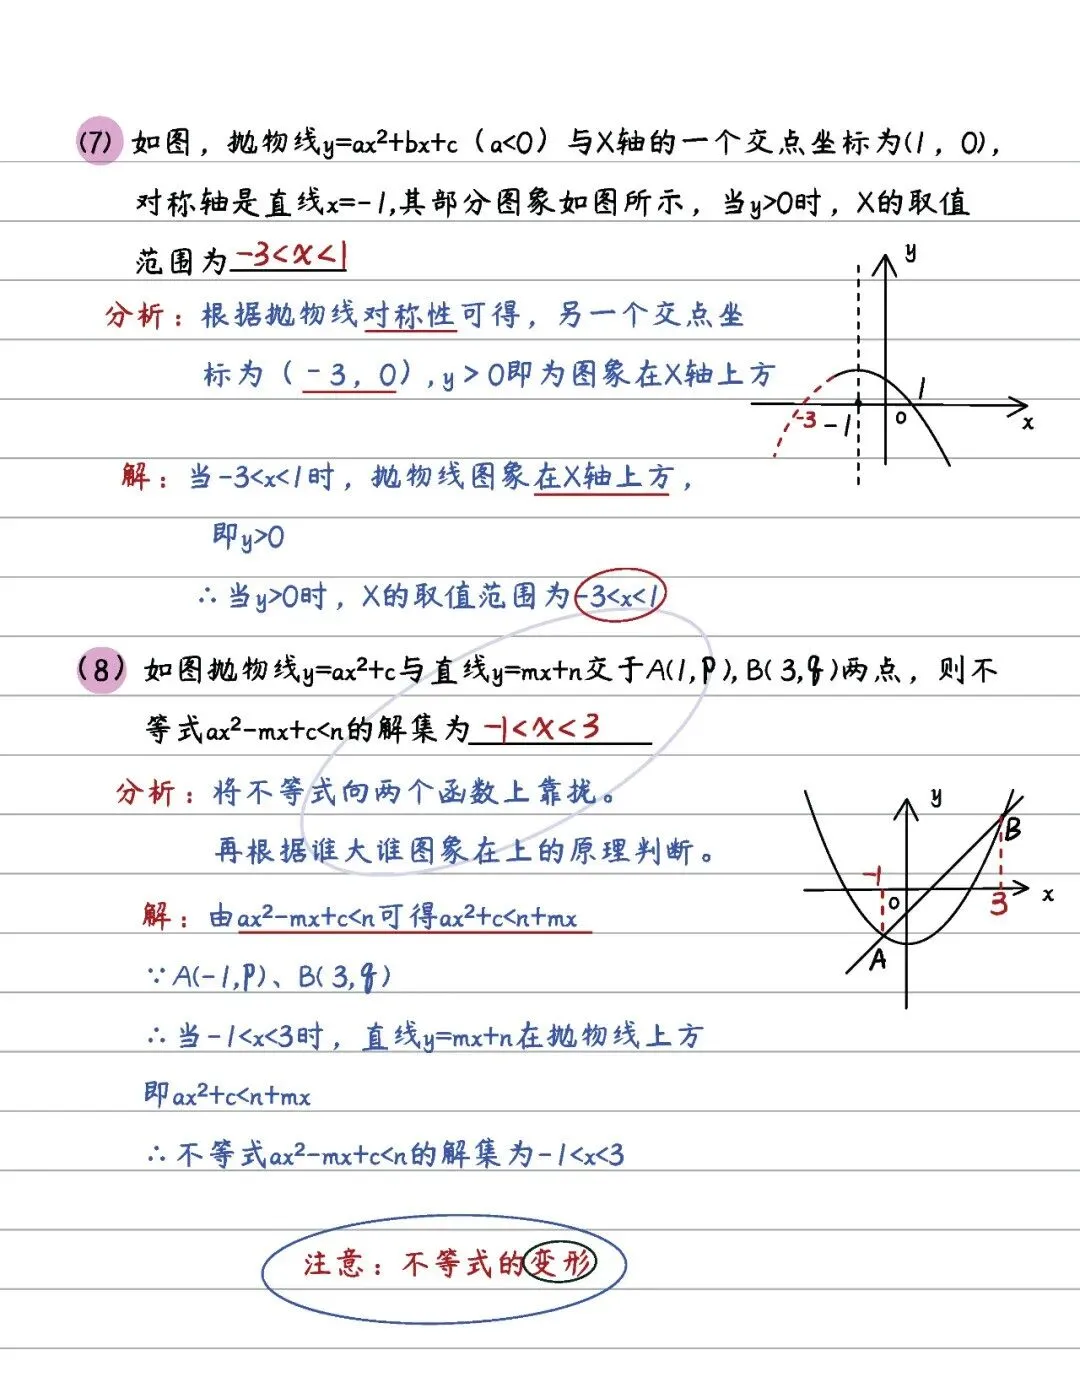 (7) 如图，抛物线y=ax²+bx+c（a<0）与X轴的一个交点坐标为(1，0)，
对称轴是直线x=-1,其部分图象如图所示，当y>0时，X的取值
范围为-3<x<1
y
分析：根据抛物线对称性可得，另一个交点坐
标为（-3，0）,y＞0即为图象在X轴上方
1
-3 -1 0 x
解：当-3<x<1时，抛物线图象在X轴上方，
即y>0
∴当y>0时，X的取值范围为-3<x<1
(8) 如图抛物线y=ax²+c与直线y=mx+n交于A(1,p),B(3,q)两点，则不
等式ax²-mx+c<n的解集为 -1<x<3
分析：将不等式向两个函数上靠拢。
y
B
再根据谁大谁图象在上的原理判断。
-1 0 3 x
解：由ax²-mx+c<n可得ax²+c<n+mx
A
∵A(-1,p)、B(3,q)
∴当-1<x<3时，直线y=mx+n在抛物线上方
即ax²+c<n+mx
∴不等式ax²-mx+c<n的解集为-1<x<3
注意：不等式的变形